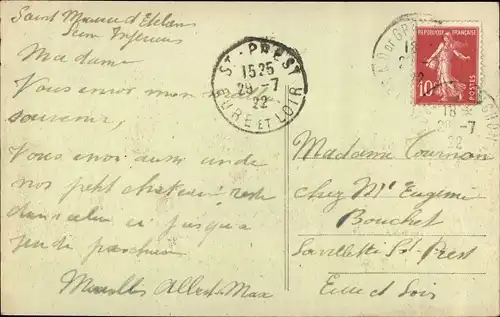 Saint Maurice d'Etelan
Seine Inférieure
Madame
Vous envoi mon
souvenir,
Vous envoi aussi un de
nos petit chateau reste
dans celui ci jusqu'a
Albert Max
ST-PREST
15 25
29 -7
22
EURE ET LOIR
REPUBLIQUE FRANÇAISE
10c
POSTES
18
-7
22
Madame Tournon
chez Mr Eugène
Bouchet
St-Prest
Eure et Loir